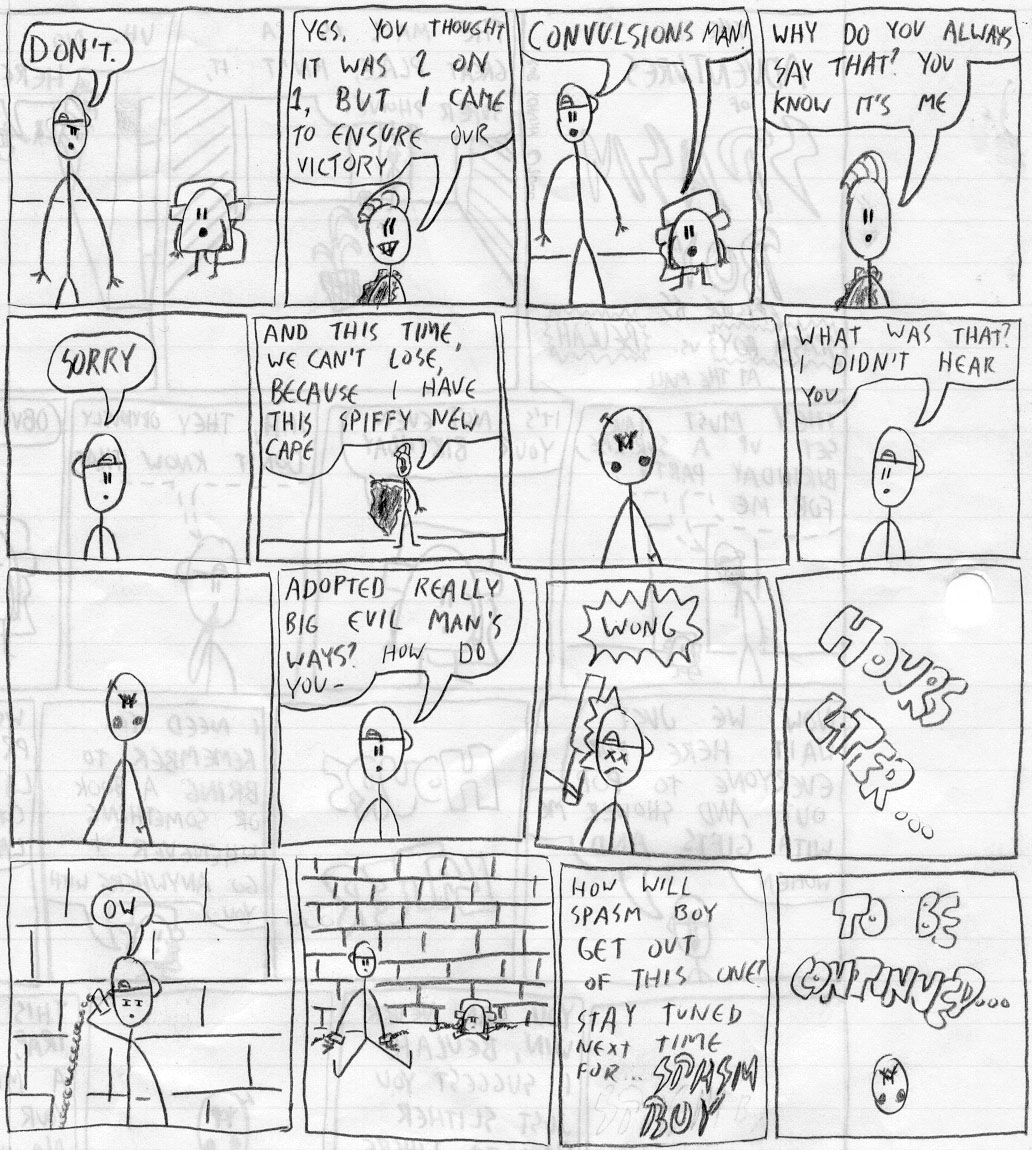 DON'T.
YES, YOU THOUGHT
IT WAS 2 ON
1, BUT I CAME
TO ENSURE OUR
VICTORY
CONVULSIONS MAN!
WHY DO YOU ALWAYS
SAY THAT? YOU
KNOW IT'S ME
SORRY
AND THIS TIME,
WE CAN'T LOSE,
BECAUSE I HAVE
THIS SPIFFY NEW
CAPE
WHAT WAS THAT?
I DIDN'T HEAR
YOU
ADOPTED REALLY
BIG EVIL MAN'S
WAYS? HOW DO
YOU-
WONG
HOURS
LATER...
OW
HOW WILL
SPASM BOY
GET OUT
OF THIS ONE?
STAY TUNED
NEXT TIME
FOR... SPASM
BOY
TO BE
CONTINUED...